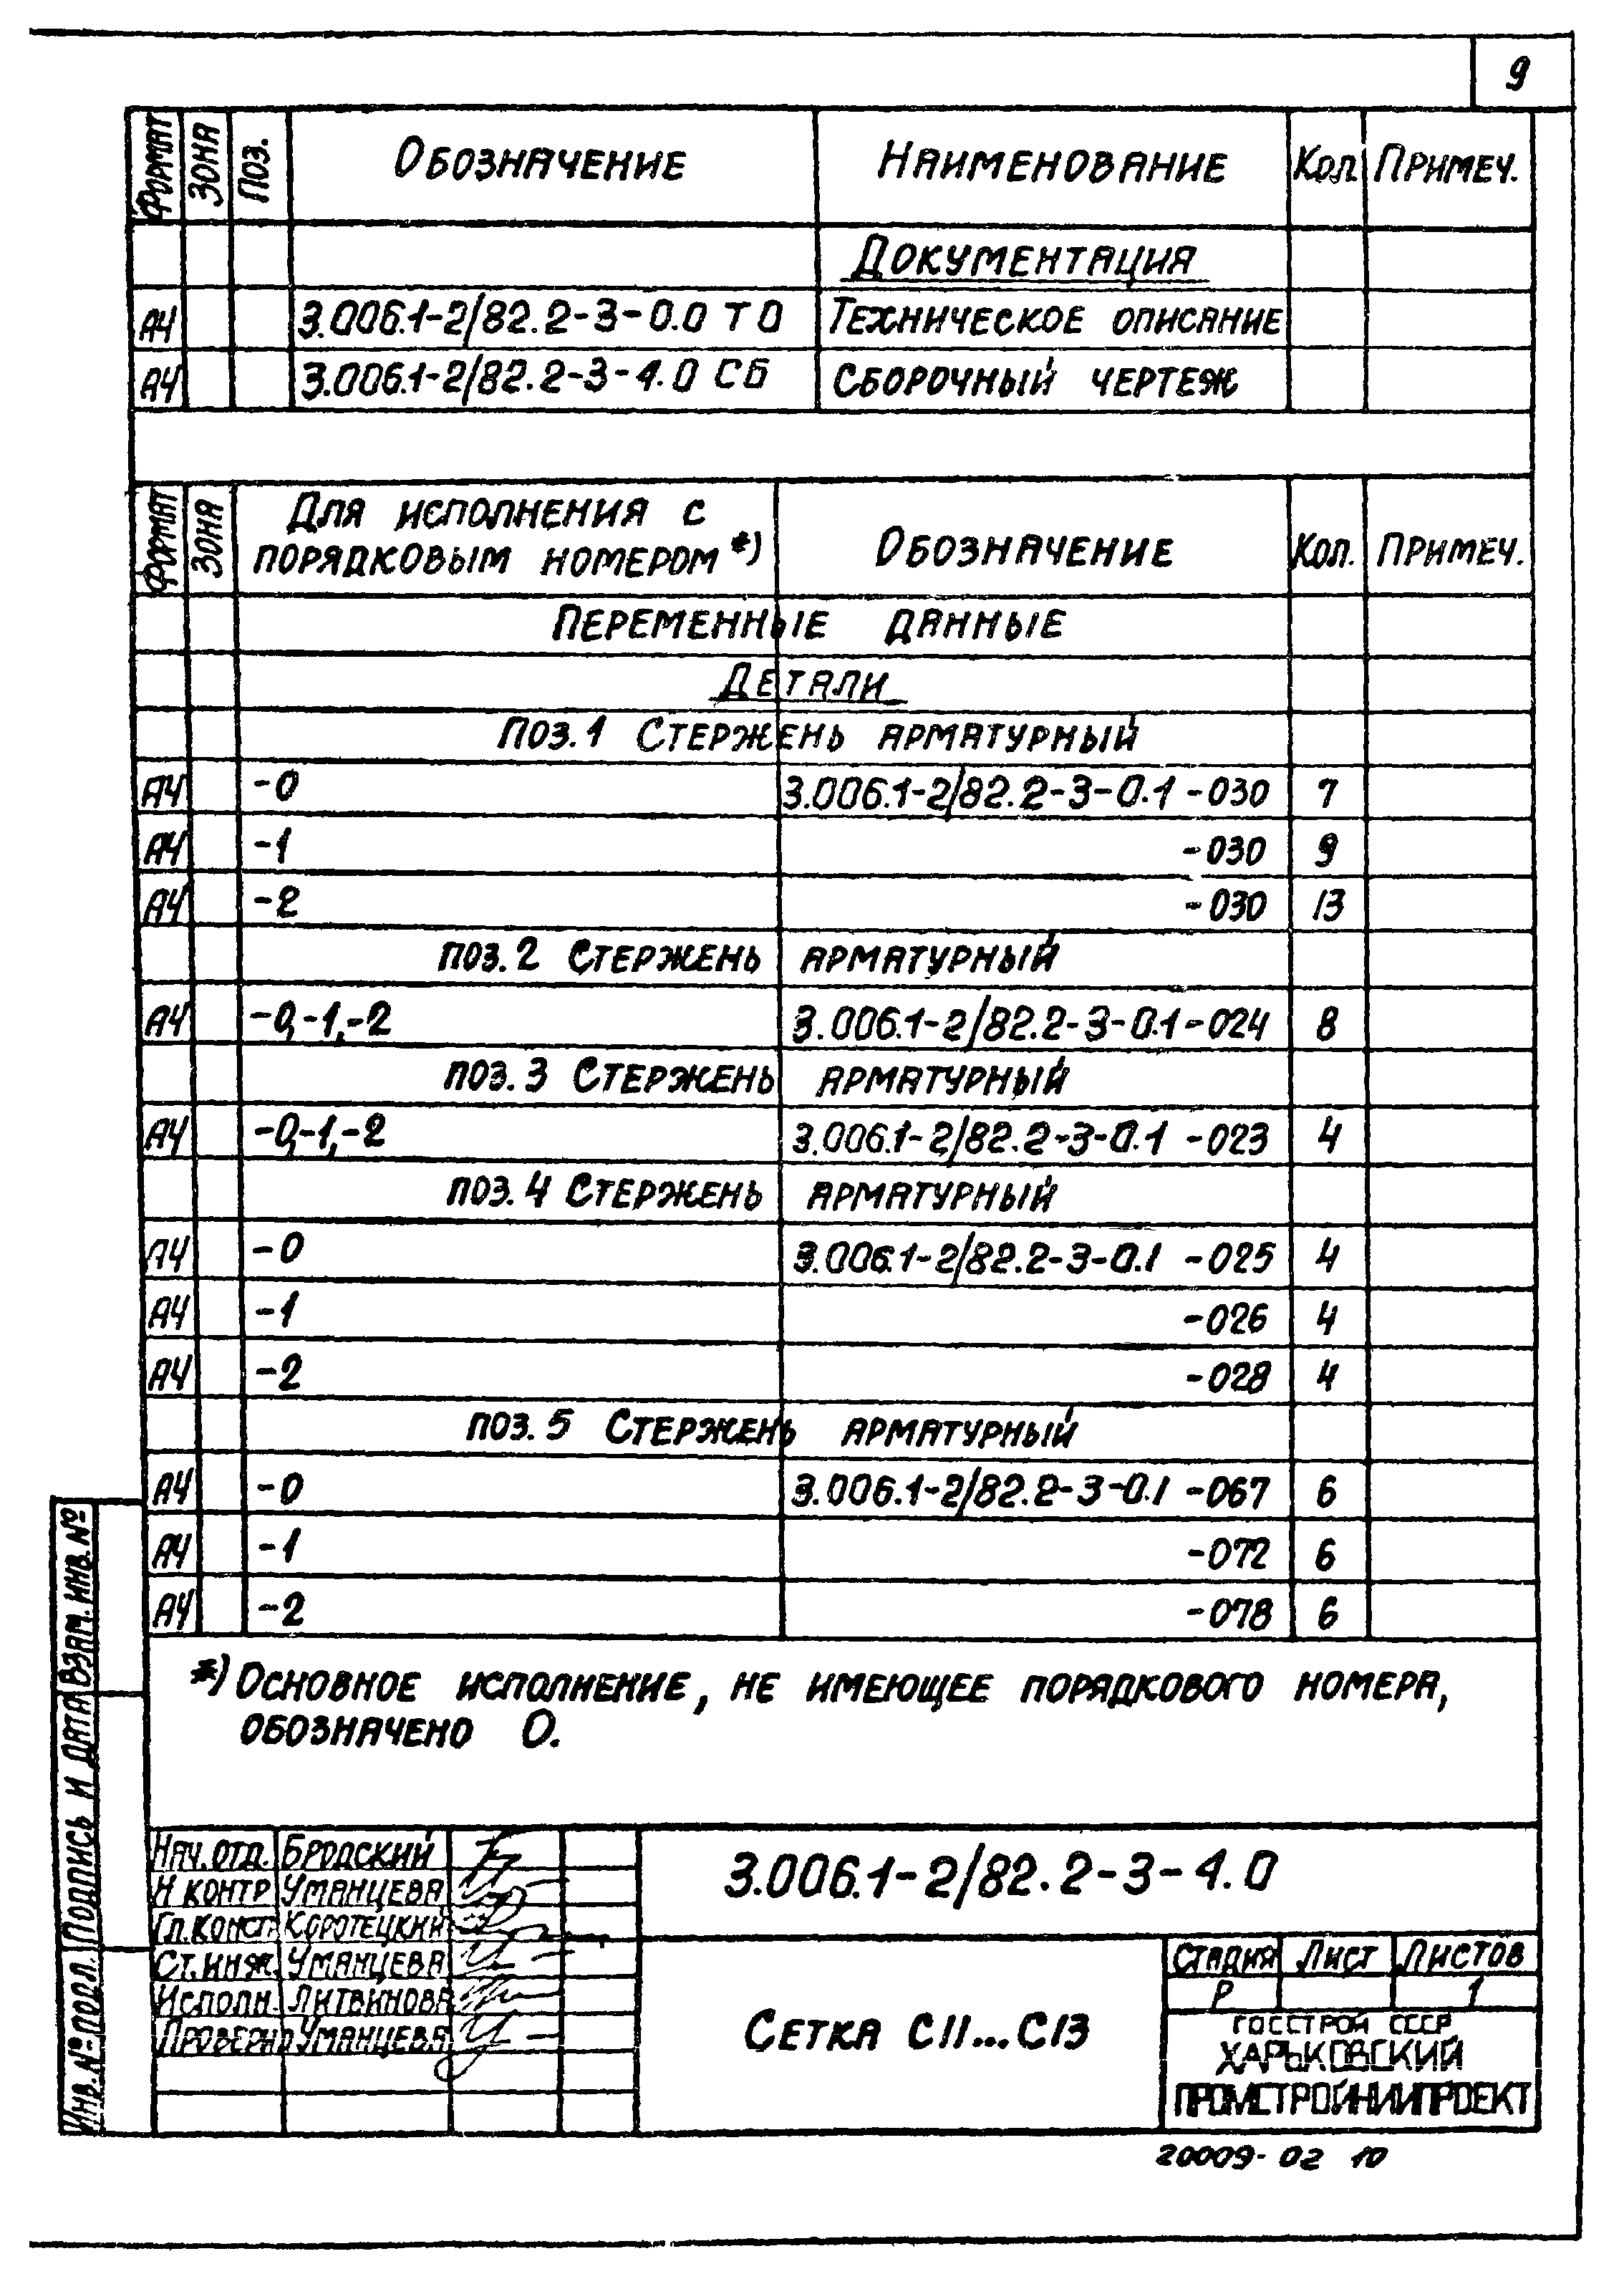 9
Формат Зона Поз. Обозначение Наименование Кол. Примеч.
Документация
А4 3.006.1-2/82.2-3-0.0 ТО Техническое описание
А4 3.006.1-2/82.2-3-4.0 СБ Сборочный чертеж
Формат Зона Для исполнения с порядковым номером *) Обозначение Кол. Примеч.
Переменные данные
Детали
Поз.1 Стержень арматурный
А4 -0 3.006.1-2/82.2-3-0.1 -030 7
А4 -1 -030 9
А4 -2 -030 13
поз.2 Стержень арматурный
А4 -0,-1,-2 3.006.1-2/82.2-3-0.1-024 8
поз.3 Стержень арматурный
А4 -0,-1,-2 3.006.1-2/82.2-3-0.1 -023 4
поз.4 Стержень арматурный
А4 -0 3.006.1-2/82.2-3-0.1 -025 4
А4 -1 -026 4
А4 -2 -028 4
поз.5 Стержень арматурный
А4 -0 3.006.1-2/82.2-3-0.1 -067 6
А4 -1 -072 6
А4 -2 -078 6
*) Основное исполнение, не имеющее порядкового номера,
обозначено 0.
Инв.№ подл. Подпись и дата Взам.инв.№
Нач.отд. Бродский
Н контр Уманцева
Гл.конст. Коротецкий
Ст.инж. Уманцева
Исполн. Литвинова
Проверил Уманцева
3.006.1-2/82.2-3-4.0
Сетка С11...С13
Стадия Лист Листов
Р 1
ГОССТРОЙ СССР
ХАРЬКОВСКИЙ
ПРОМСТРОЙНИИПРОЕКТ
20009-02 10